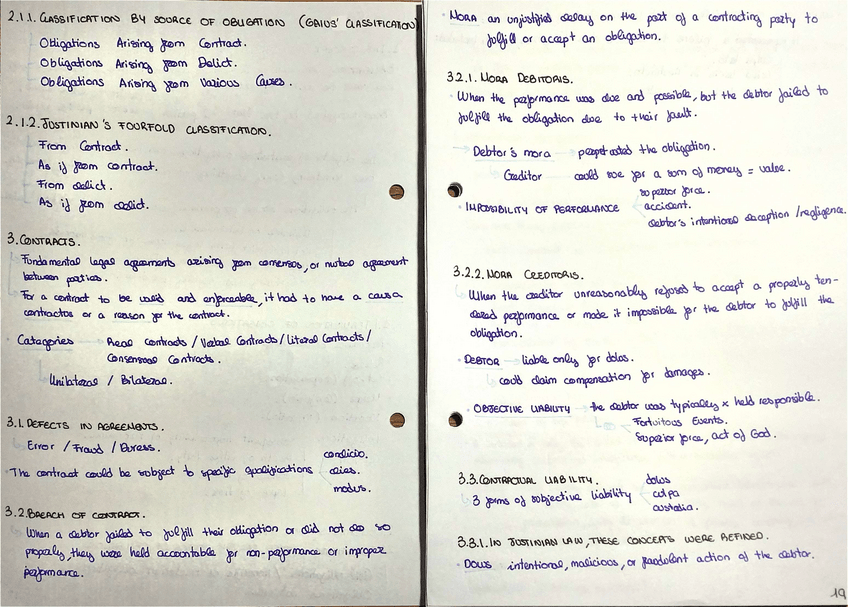 2.1.1. CLASSIFICATION BY SOURCE OF OBLIGATION (GAIUS' CLASSIFICATION)
Obligations Arising from Contract.
Obligations Arising from Delict.
Obligations Arising from Various Causes.
2.1.2. JUSTINIAN'S FOURFOLD CLASSIFICATION.
From Contract.
As if from contract.
From delict.
As if from delict.
3. CONTRACTS.
Fundamental legal agreements arising from consensus, or mutual agreement
between parties.
For a contract to be valid and enforceable, it had to have a causa
contractos or a reason for the contract.
Categories → Real contracts / Verbal Contracts / Literal Contracts /
Consensual Contracts.
Unilateral / Bilateral.
3.1. DEFECTS IN AGREEMENTS.
Error / Fraud / Duress.
condicio.
The contract could be subject to specific qualifications dies.
modus.
3.2. BREACH OF CONTRACT.
When a debtor failed to fulfill their obligation or did not do so
properly, they were held accountable for non-performance or improper
performance.
MORA an unjustified delay on the part of a contracting party to
fulfill or accept an obligation.
3.2.1. MORA DEBITORIS.
When the performance was due and possible, but the debtor failed to
fulfill the obligation due to their fault.
→ Debtor's mora → the obligation.
Creditor could sue for a sum of money = value.
superior force.
IMPOSSIBILITY OF PERFORMANCE accident.
debtor's intentional deception / negligence.
3.2.2. MORA CREDITORIS.
When the creditor unreasonably refused to accept a properly ten-
dered performance or made it impossible for the debtor to fulfill the
obligation.
DEBTOR → liable only for dolus.
could claim compensation for damages.
OBJECTIVE LIABILITY → the debtor was typically x held responsible.
Fortuitous Events.
Superior force, act of God.
3.3. CONTRACTUAL LIABILITY. dolus
3 forms of subjective liability culpa
custodia.
3.3.1. IN JUSTINIAN LAW, THESE CONCEPTS WERE REFINED.
DOLUS intentional, malicious, or fraudolent action of the debtor.
19